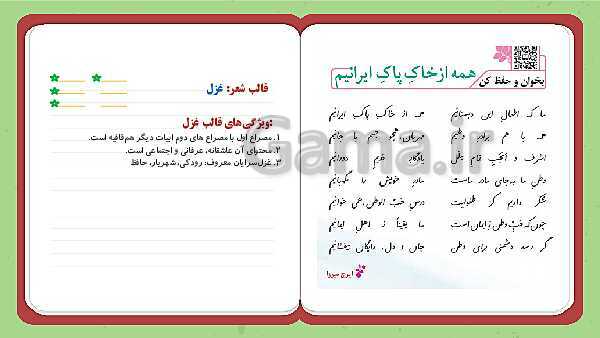 بخوان و حفظ کن
همه از خاکِ پاکِ ایرانیم
ما که اطفالِ این دبستانیم
همه از خاکِ پاکِ ایرانیم
همه با هم برادرِ وطنیم
مهربان، همچو جسم با جانیم
اشرف و انجبِ تمامِ ملل
یادگارِ قدیمِ دورانیم
وطنِ ما به‌جای مادرِ ماست
مادرِ خویش را نگهبانیم
شکر داریم کز طفولیت
درسِ حُبّ‌الوطن همی خوانیم
چون‌که حُبِّ وطن ز ایمان است
ما یقیناً ز اهلِ ایمانیم
گر رسد دشمنی برای وطن
جان و دل، رایگان بیفشانیم
ایرج میرزا
قالب شعر: غزل
ویژگی‌های قالب غزل:
۱. مصراع اول با مصراع های دوم ابیات دیگر هم‌قافیه است.
۲. محتوای آن عاشقانه، عرفانی و اجتماعی است.
۳. غزل‌سرایان معروف: رودکی، شهریار، حافظ
Gama.ir